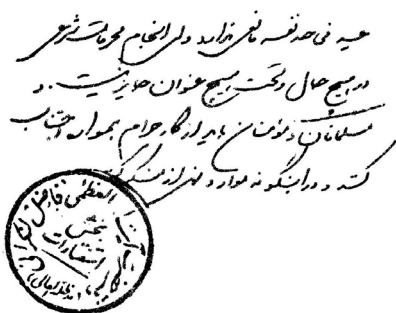 عید فی حد نفسه مانعی ندارد ولی انجام محرمات شرعی
در هیچ حال و تحت هیچ عنوان جایز نیست. و
مسلمانان و مؤمنان باید از کار حرام همواره اجتناب
کنند و در اینگونه موارد نهی از منکر کنند
العظمی فاضل
بخش
استفتاءات